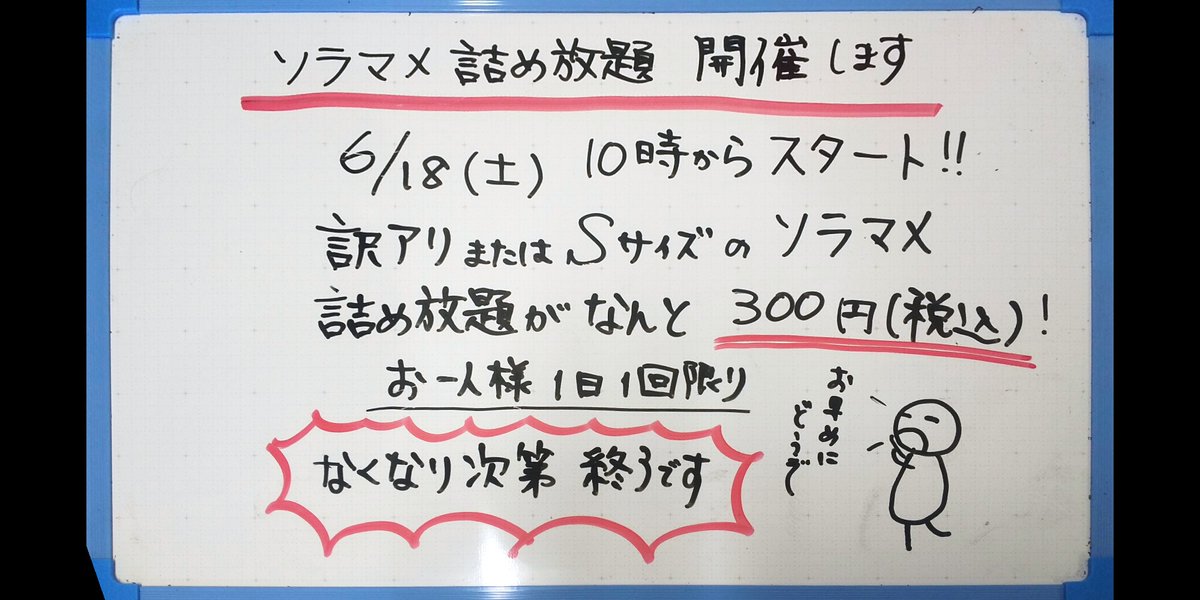 ソラマメ 詰め放題 開催します
6/18(土) 10時からスタート!!
訳アリまたはSサイズのソラマメ
詰め放題がなんと 300円(税込)!
お一人様1日1回限り
なくなり次第 終了です
お早めに
どうぞ